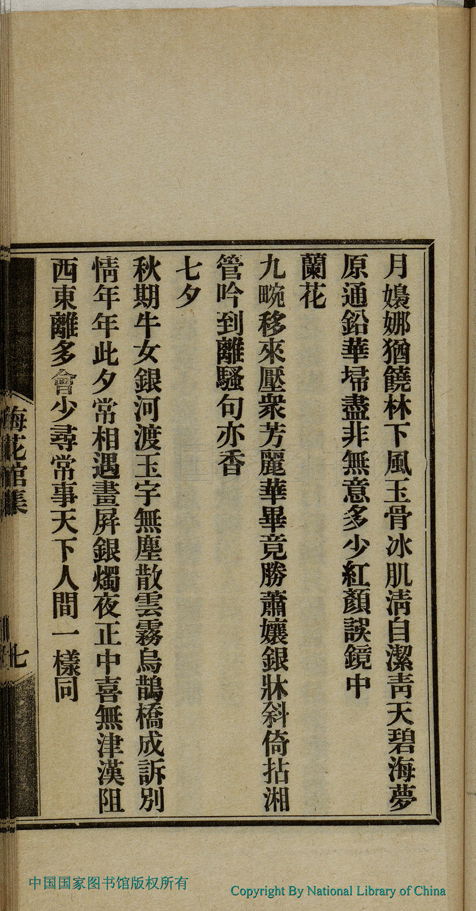 月嬝娜猶饒林下風玉骨冰肌淸自潔靑天碧海夢
原通鉛華埽盡非無意多少紅顏誤鏡中
蘭花
九畹移來壓衆芳麗華畢竟勝蕭孃銀牀斜倚拈湘
管吟到離騷句亦香
七夕
秋期牛女銀河渡玉宇無塵散雲霧烏鵲橋成訴別
情年年此夕常相遇畫屛銀燭夜正中喜無津漢阻
西東離多會少尋常事天下人間一樣同
梅花館集
七
中国国家图书馆版权所有
Copyright By National Library of China